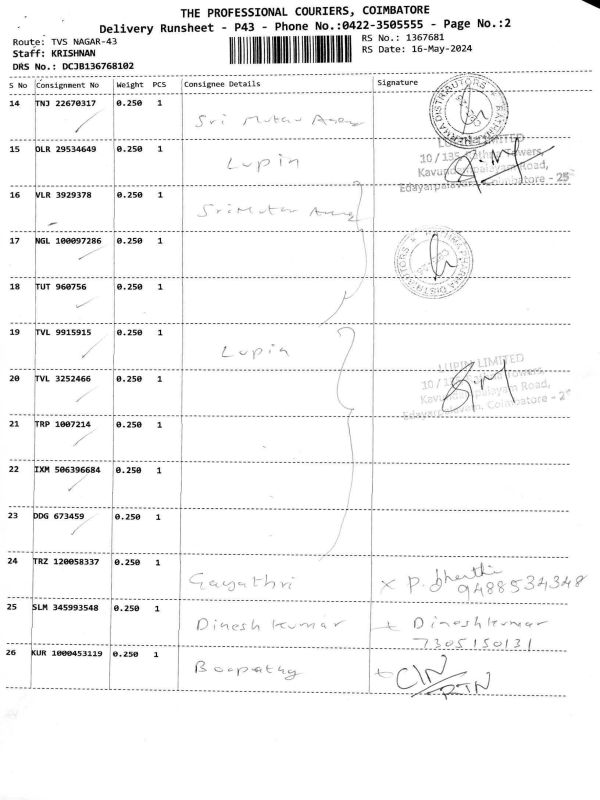 THE PROFESSIONAL COURIERS, COIMBATORE
Delivery Runsheet - P43 - Phone No.:0422-3505555 - Page No.:2
Route: TVS NAGAR-43 RS No.: 1367681
Staff: KRISHNAN RS Date: 16-May-2024
DRS No.: DCJB136768102
S No Consignment No Weight PCS Consignee Details Signature
14 TNJ 22670317 0.250 1
Sri Mutav
15 DLR 29534649 0.250 1 Lupin
LIMITED
Towers,
Road,
Coimbatore - 25
16 VLR 3929378 0.250 1
Sri Mutav
17 NGL 100097286 0.250 1
DISTRIBUTORS
18 TUT 960756 0.250 1
19 TVL 9915915 0.250 1
Lupin
LUPIN LIMITED
Towers,
Kavundampalayam Road,
Edayarpalayam, Coimbatore - 25
20 TVL 3252466 0.250 1
21 TRP 1007214 0.250 1
22 IXM 506396684 0.250 1
23 DDG 673459 0.250 1
24 TRZ 120058337 0.250 1
Gayathri x P. bharthi
9488534348
25 SLM 345993548 0.250 1
Dinesh kumar Dineshkumar
7305150131
26 KUR 1000453119 0.250 1
Boopathy